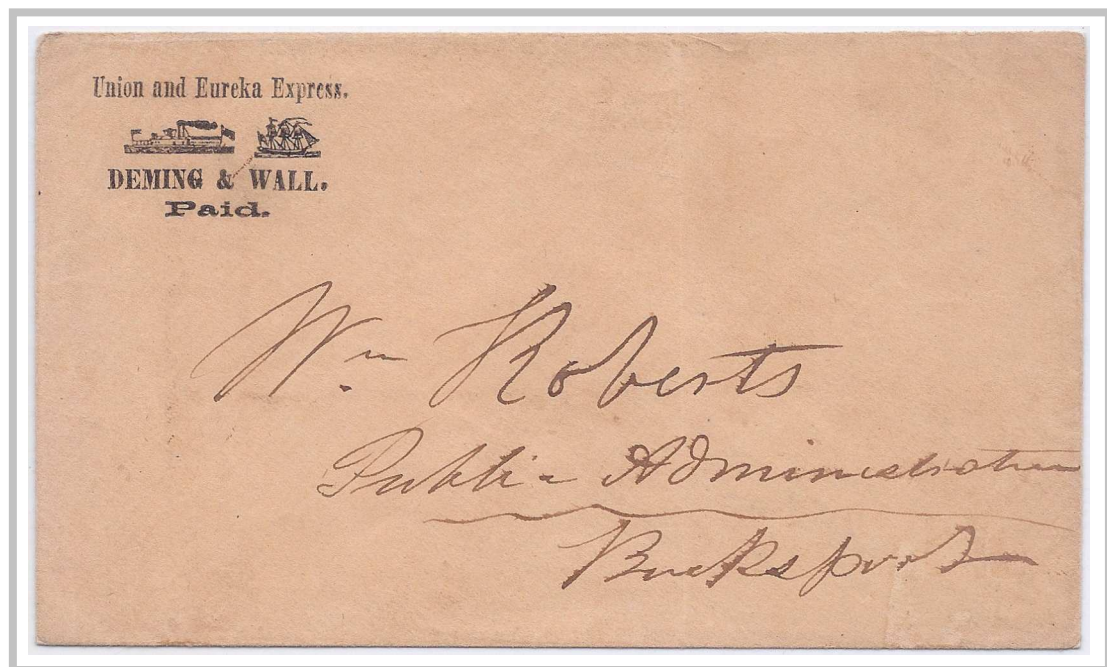 Union and Eureka Express.
DEMING & WALL.
Paid.
Wm Roberts
Public Administrator
Bucksport